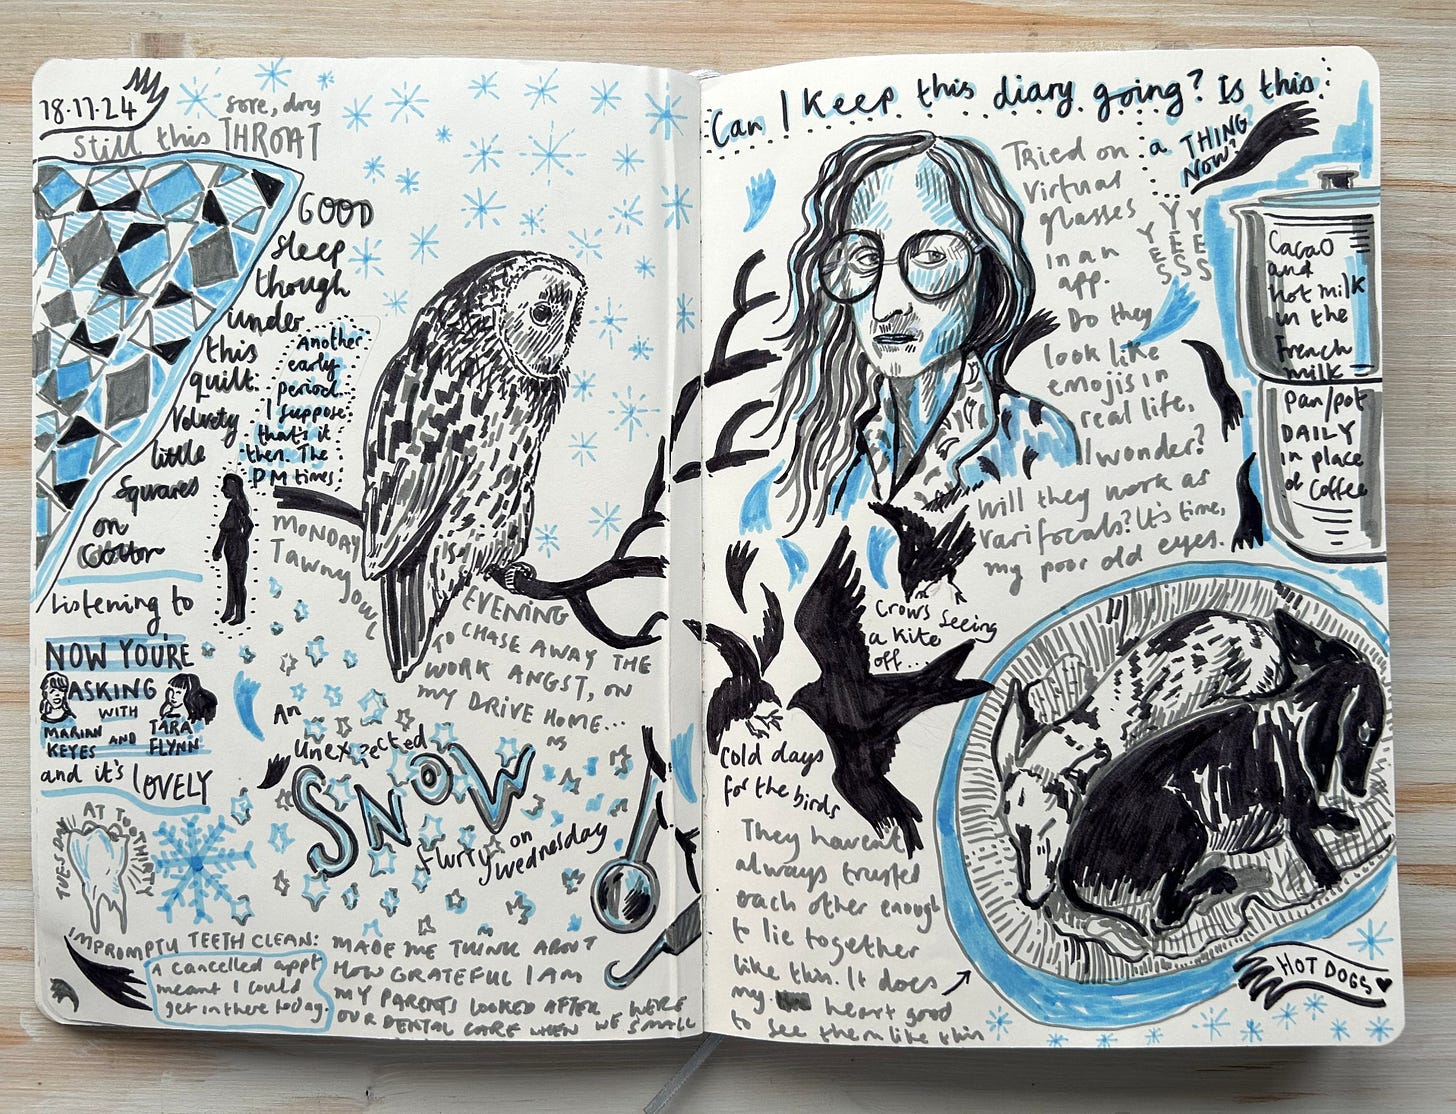 18·11·24
Still this
sore, dry
THROAT
GOOD
sleep
though
under
this
quilt.
Velvety
little
squares
on
Cotton
Another
early
period...
I suppose
that's it
then. The
PM times.
Listening to
NOW YOU'RE
ASKING
WITH
MARIAN AND TARA
KEYES FLYNN
and it's LOVELY
MONDAY
Tawny owl
EVENING
TO CHASE AWAY THE
WORK ANGST, ON
MY DRIVE HOME...
An
unexpected
SNOW
flurry on
wednesday
TUESDAY
AT TOOTHIRTY
IMPROMPTU TEETH CLEAN:
a cancelled appt
meant I could
get in there today.
MADE ME THINK ABOUT
HOW GRATEFUL I AM
MY PARENTS LOOKED AFTER
OUR DENTAL CARE WHEN WE WERE
SMALL
Can I keep this diary going? Is this
a THING
NOW?
YES
YES
YES
Tried on
virtual
glasses
in an
app.
Do they
look like
emojis in
real life,
I wonder?
Will they work as
varifocals? It's time,
my poor old eyes.
Cacao
and
hot milk
in the
French
milk
pan/pot
DAILY
in place
of coffee
Crows seeing
a kite
off...
Cold days
for the birds
They haven't
always trusted
each other enough
to lie together
like this. It does
my heart good
to see them like this
HOT DOGS